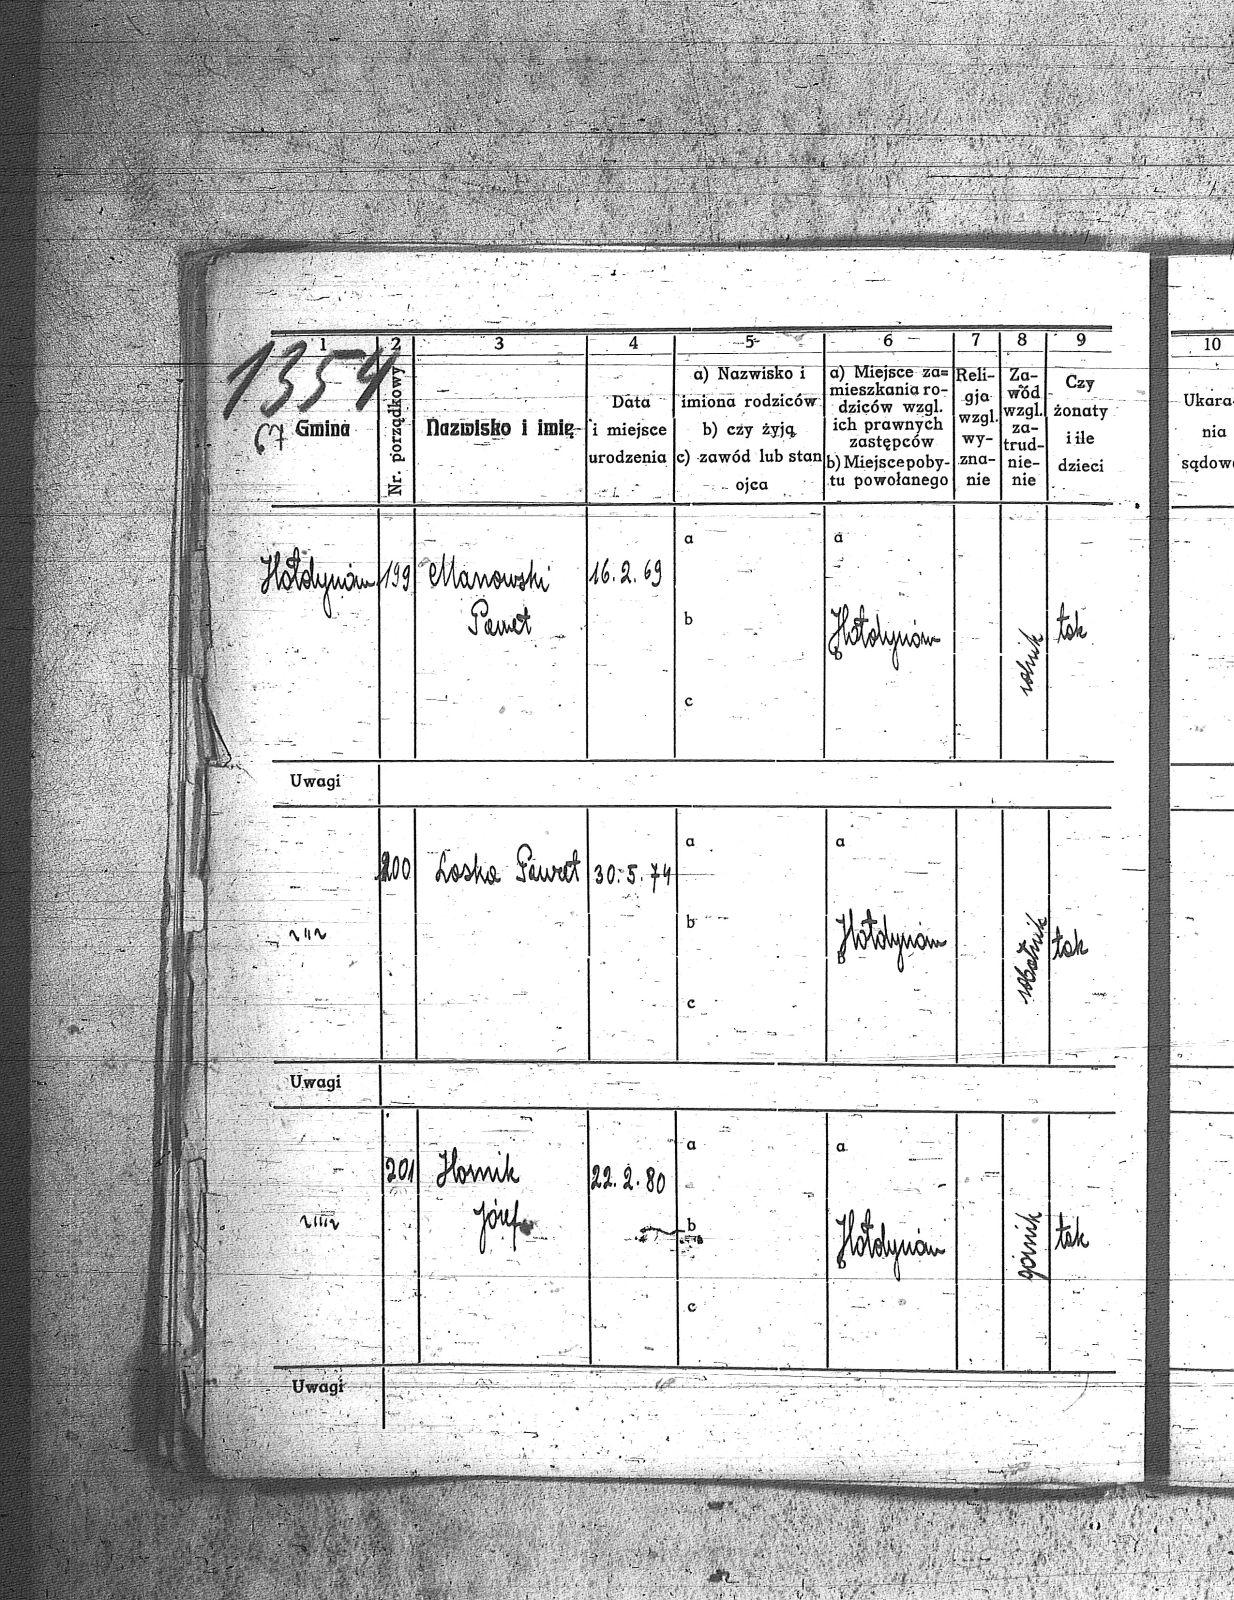 1354
67
1 2 3 4 5 6 7 8 9 10
Gmina
Nr. porządkowy
Nazwisko i imię
Data
i miejsce
urodzenia
a) Nazwisko i
imiona rodziców
b) czy żyją
c) zawód lub stan
ojca
a) Miejsce za=
mieszkania ro-
dziców wzgl.
ich prawnych
zastępców
b) Miejsce poby-
tu powołanego
Reli-
gja
wzgl.
wy-
zna-
nie
Za-
wód
wzgl.
za-
trud-
nie-
nie
Czy
żonaty
i ile
dzieci
Ukara-
nia
sądowe
Hołdynów 199 Manowski 16.2.69
Paweł
a
b
c
a
b Hołdynów
rolnik
tak
Uwagi
200 Loska Paweł 30.5.74
a
b
c
a
b Hołdynów
robotnik
tak
Uwagi
201 Hornik 22.2.80
Józef
a
b
c
a
b Hołdynów
górnik
tak
Uwagi